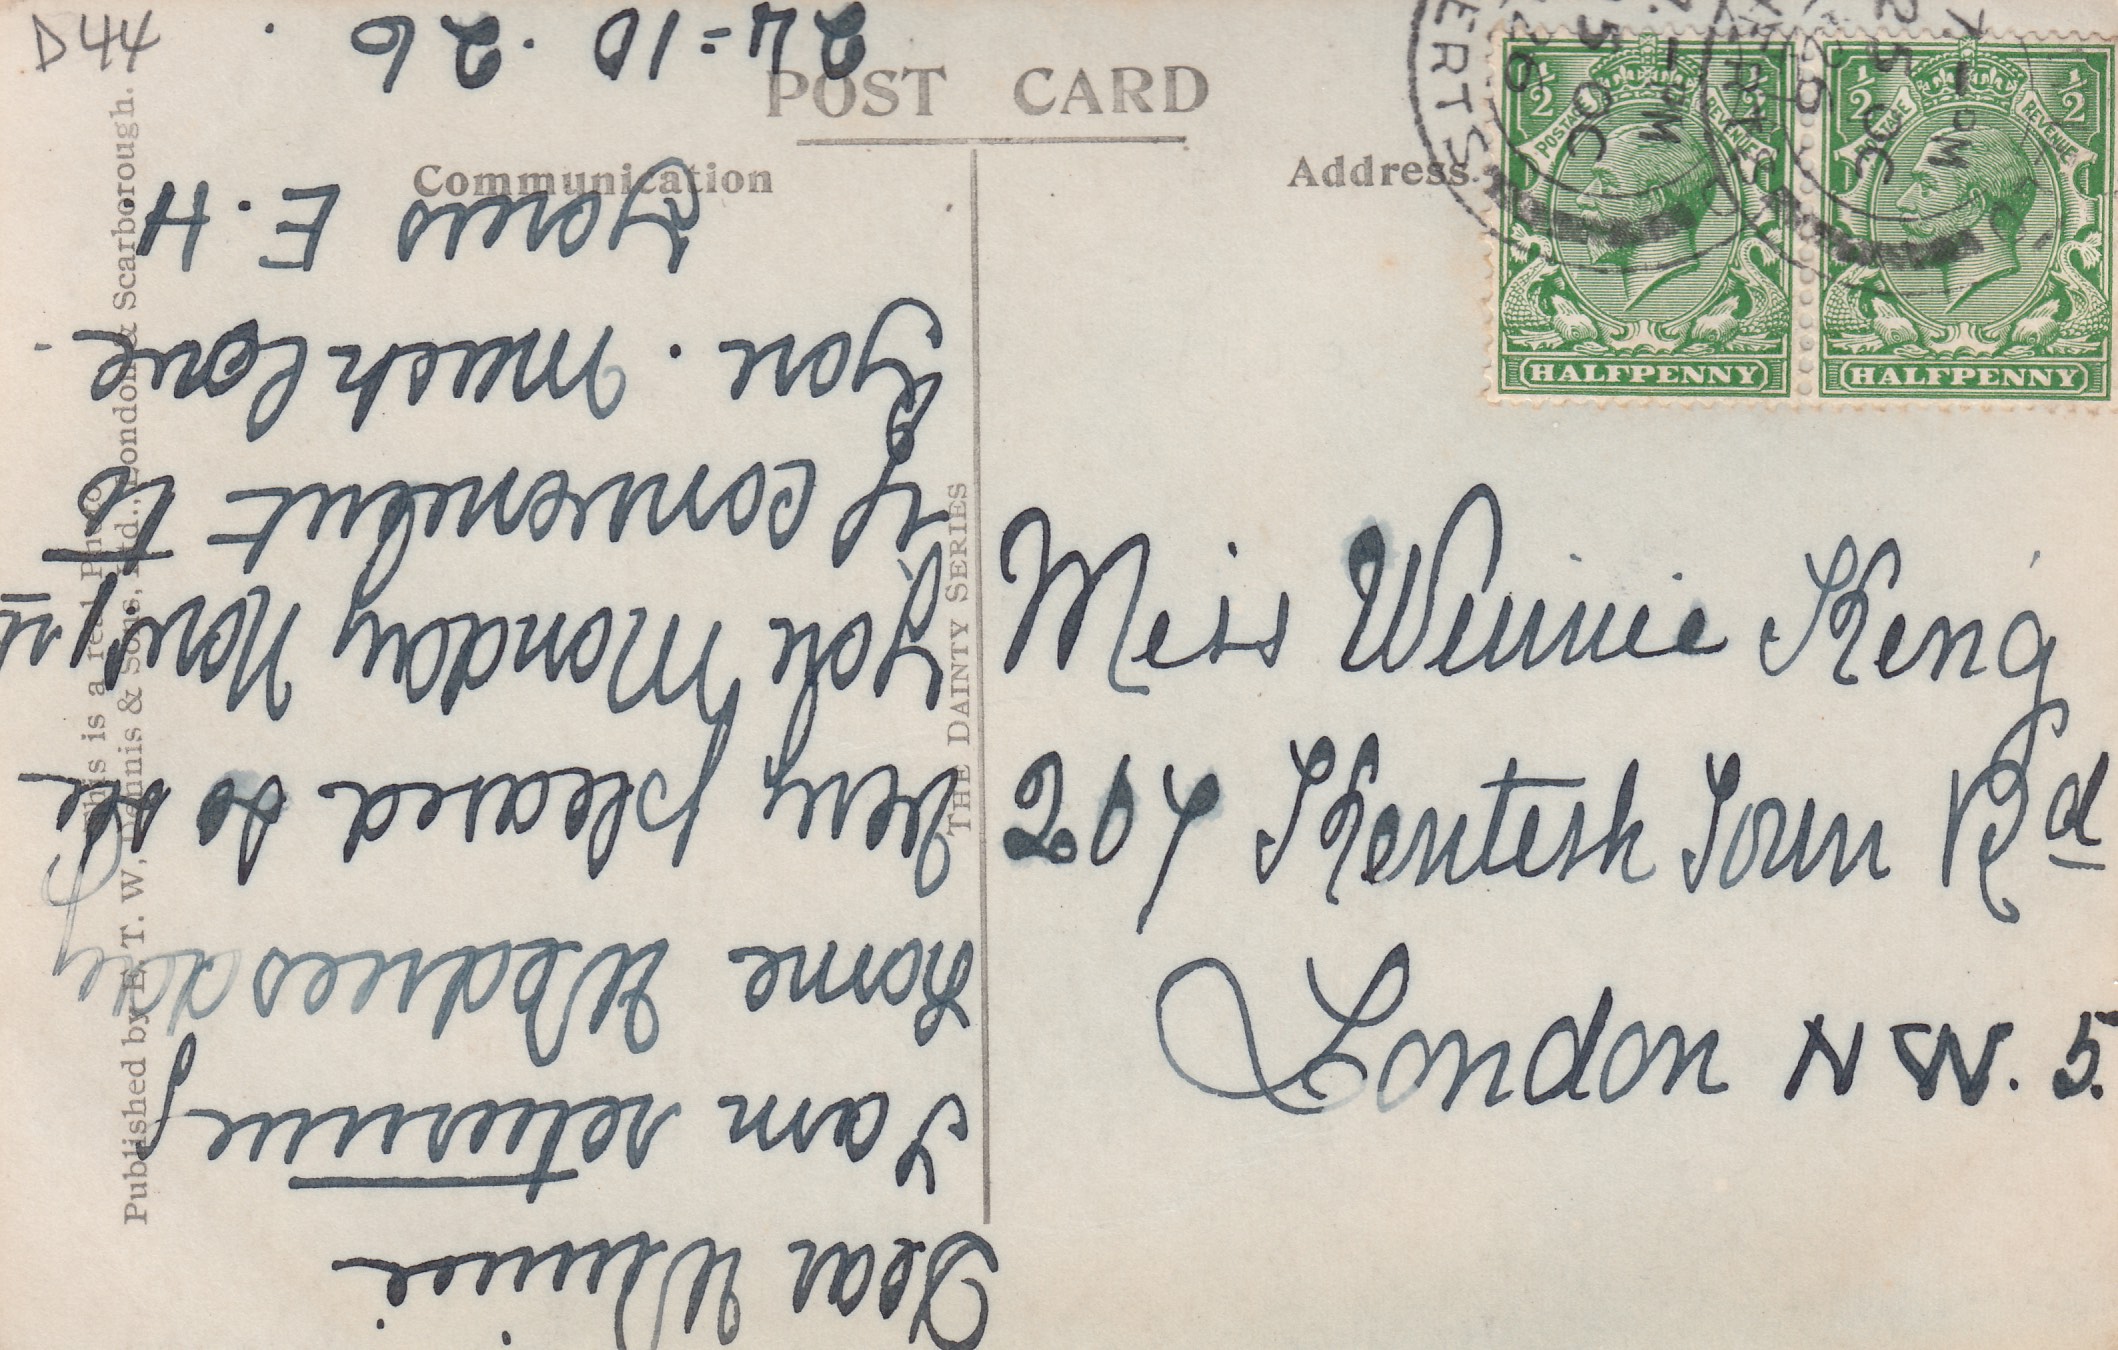 D44
POST CARD
Communication
Address.
THE DAINTY SERIES
This is a real Photo
Published by E. T. W. Dennis & Sons, Ltd., London & Scarborough.
Dear Winnie
I am returning
home Wednesday
very pleased to see
you Monday Nov 1st
if convenient to
you. Much love
Yours E. H
24=10.26
Miss Winnie King
207 Kentish Town Rd
London N W. 5.
POSTAGE
REVENUE
½
½
HALFPENNY
POSTAGE
REVENUE
½
½
HALFPENNY
- PM
25 OC
26
ERTS
- PM
25 OC
26
ERTS